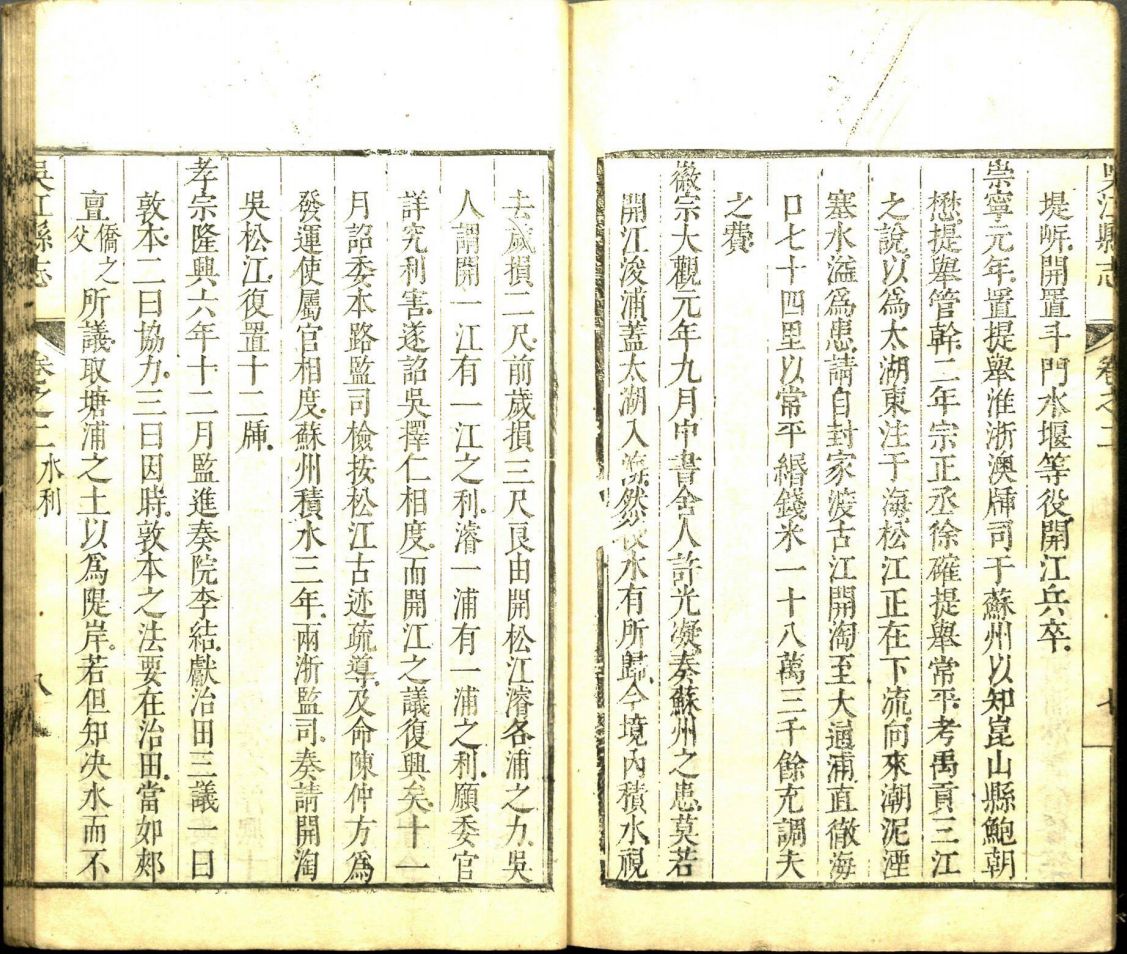 吳江縣志 卷之二 七
堤岍開置斗門水堰等役開江兵卒
崇寧元年置提舉淮浙澳牐司于蘇州以知崑山縣鮑朝
懋提舉管幹二年宗正丞徐確提舉常平考禹貢三江
之說以為太湖東注于海松江正在下流向來潮泥湮
塞水溢爲患請自封家渡古江開淘至大通浦直徹海
口七十四里以常平緡錢米一十八萬三千餘充調夫
之費
徽宗大觀元年九月中書舍人許光凝奏蘇州之患莫若
開江浚浦蓋太湖入海然後水有所歸今境內積水視
去歲損二尺前歲損三尺良由開松江濬各浦之力吳
人謂開一江有一江之利濬一浦有一浦之利願委官
詳究利害遂詔吳擇仁相度而開江之議復興矣十一
月詔委本路監司檢按松江古迹疏導及命陳仲方爲
發運使屬官相度蘇州積水三年兩浙監司奏請開淘
吳松江復置十二牐
孝宗隆興六年十二月監進奏院李結獻治田三議一曰
敦本二曰協力三曰因時敦本之法要在治田當如郟
亶僑之父所議取塘浦之土以爲隄岸若但知决水而不
吳江縣志 卷之二 水利 八